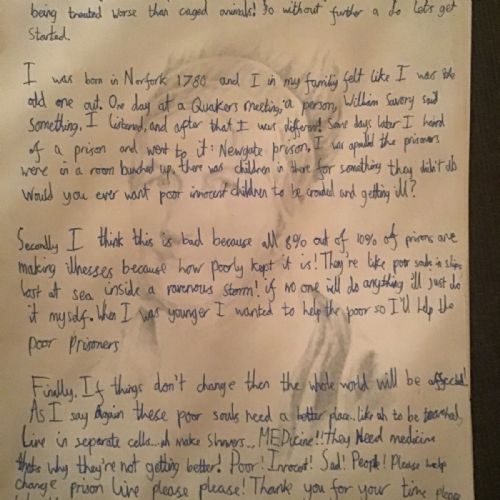 being treated worse than caged animals! So without further a do let's get
started.
I was born in Norfork 1780 and I in my family felt like I was the
odd one out. One day at a Quakers meeting, a person, William Savory said
something, I listened, and after that I was different! Some days later I heard
of a prison and went to it: Newgate prison, I was apauled the prisoners
were in a room bunched up, there was children in there for something they didn't do
would you ever want poor innocent children to be crowded and getting ill?
Secondly I think this is bad because all 8% out of 10% of prisons are
making illnesses because how poorly kept it is! They're like poor souls in ships
lost at sea inside a ravenous storm! if no one will do anything I'll just do
it myself. When I was younger I wanted to help the poor so I'll help the
poor Prisoners
Finally, If things don't change then the whole world will be affected!
As I say again these poor souls need a better place.. like oh to be
Live in seperate cells... oh make showers... MEDicine!! they Need medicine
thats why they're not getting better! Poor! Innocent! Sad! People! Please help
change prison live please please! Thank you for your time please